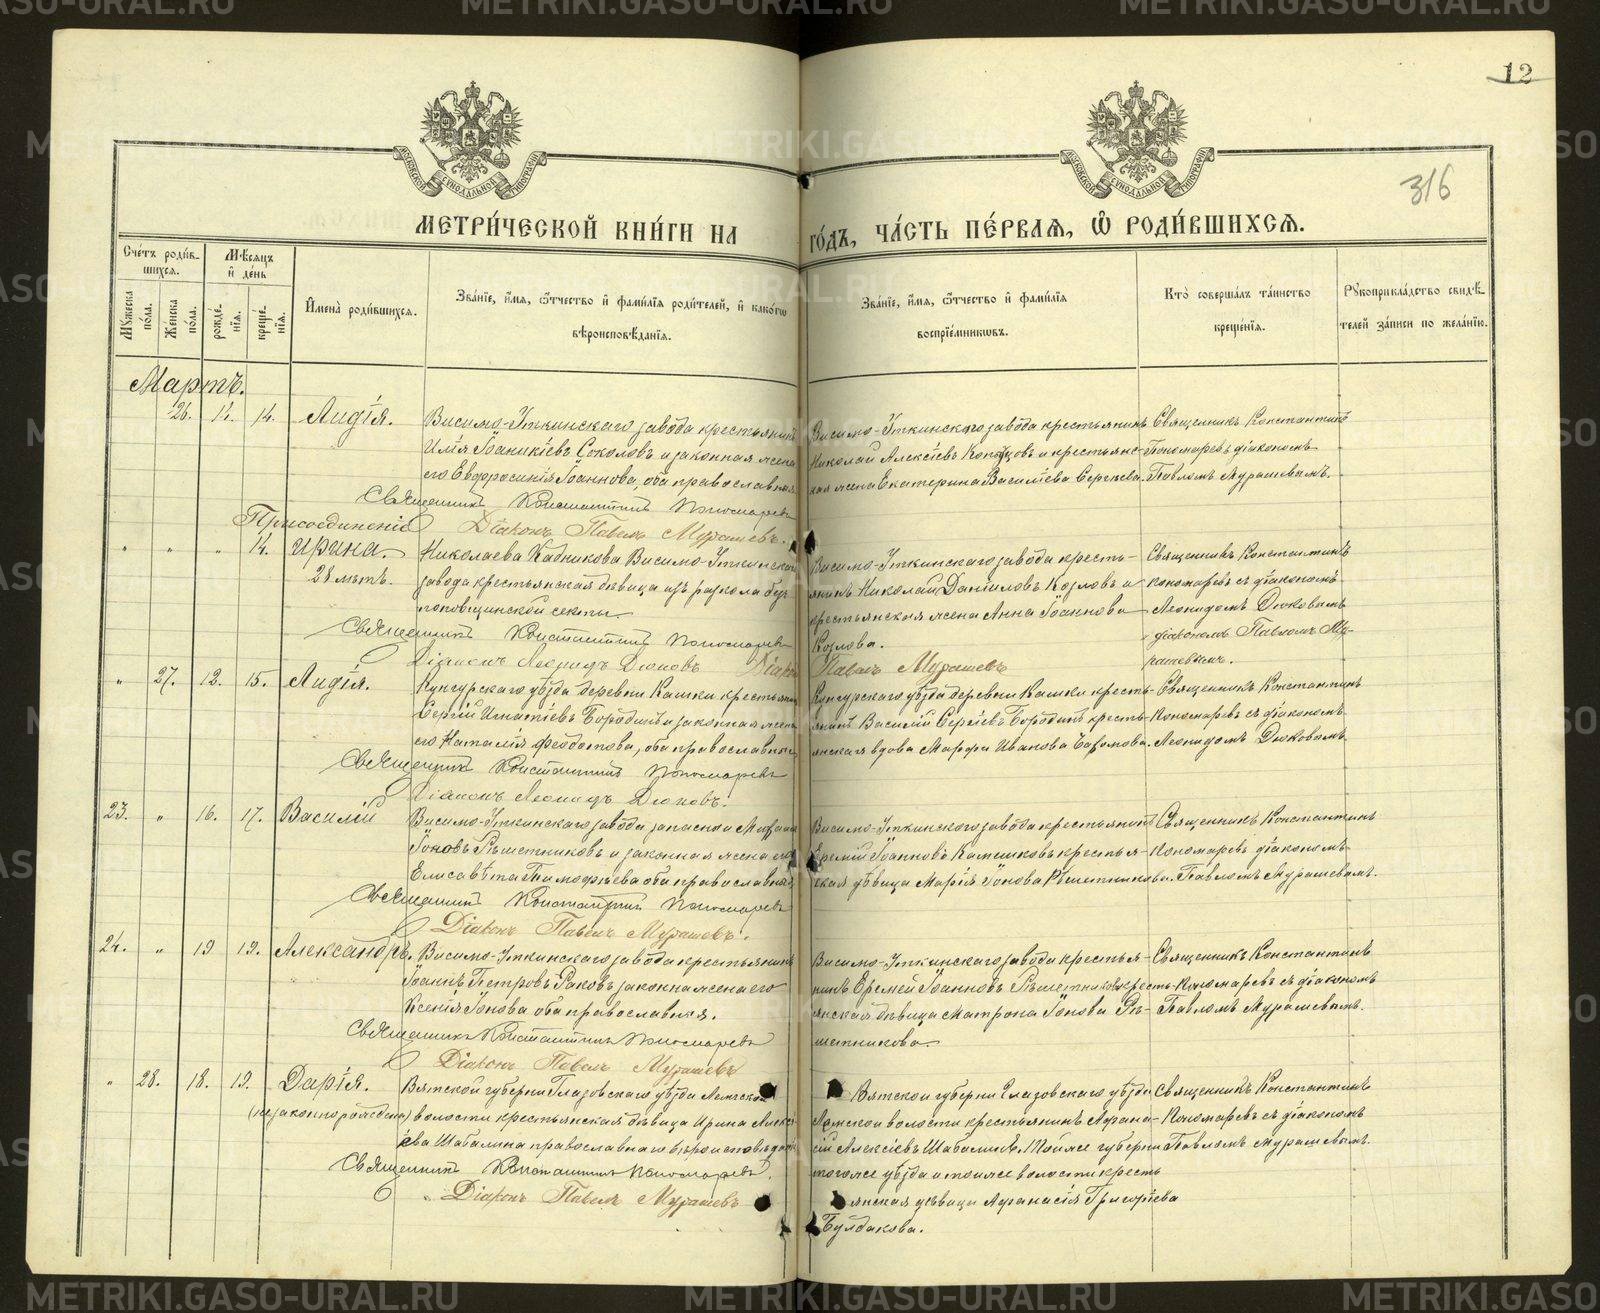 12
316
МЕТРИ́ЧЕСКОЙ КНИ́ГИ НА
ГО́ДЪ, ЧА́СТЬ ПЕ́РВАЯ, Ѡ РОДИ́ВШИХСЯ.
Сче́тъ роди́в-
шихся.
Мѣ́сяцъ
и҆ де́нь
Му́жеска
по́ла.
Же́нска
по́ла.
рожде́-
нїя.
креще́-
нїя.
И҆мена̀ роди́вшихся.
Зва́нїе, и҆́мя, ѻ҆́тчество и҆ фами́лїя роди́телей, и҆ како́гѡ
вѣроисповѣ́данїя.
Зва́нїе, и҆́мя, ѻ҆́тчество и҆ фами́лїя
воспрїе́мникѡвъ.
Кто̀ соверша́лъ та́инство
креще́нїя.
Рꙋкоприкла́дство свидѣ́-
телей за́писи по жела́нїю.
Мартъ.
26. 14. 14. Лидія.
Висимо-Уткинскаго завода крестьянинъ
Илія Іоаникіевъ Соколовъ и законная жена
его Евфросинія Іоаннова, оба православные
Священникъ Константинъ Пономаревъ
Діаконъ Павелъ Мурашевъ.
Висимо-Уткинскаго завода крестьянинъ
Николай Алексіевъ и крестьянс-
кая жена Екатерина Василіева Сергеева.
Священникъ Константинъ
Пономаревъ діакономъ
Павломъ Мурашевымъ.
Присоединеніе
" " " 14. Ирина.
28 лѣтъ.
Николаева Кадникова Висимо-Уткинскаго
завода крестьянская дѣвица изъ раскола без-
поповщинской секты.
Священникъ Константинъ Пономаревъ
Діаконъ Леонидъ Дюковъ Діаконъ Павелъ Мурашевъ
Висимо-Уткинскаго завода кресть-
янинъ Николай Даніиловъ Козловъ и
крестьянская жена Анна Іоаннова
Козлова.
Священникъ Константинъ
Пономаревъ съ діакономъ
Леонидомъ Дюковымъ
и діакономъ Павломъ Му-
рашевым.
" 27. 12. 15. Лидія.
Кунгурскаго уѣзда деревни Камки крестьянинъ
Сергій Игнатіевъ Бородинъ и законная жена
его Наталія Феодотова, оба православные
Священникъ Константинъ Пономаревъ
Діаконъ Леонидъ Дюковъ.
Кунгурскаго уѣзда деревни Камки кресть-
янинъ Василій Сергіевъ Бородинъ кресть-
янская вдова Марфа Иванова
Священникъ Константинъ
Пономаревъ съ діакономъ
Леонидомъ Дюковымъ
23. " 16. 17. Василій
Висимо-Уткинскаго завода запасной Михаилъ
Іоновъ Рѣшетниковъ и законная жена его
Елисавета Тимофѣева оба православные
Священникъ Константинъ Пономаревъ
Діаконъ Павелъ Мурашевъ.
Висимо-Уткинскаго завода крестьянинъ
Еремій Іоанновъ крестья-
нская дѣвица Марія Іонова Рѣшетникова.
Священникъ Константинъ
Пономаревъ діакономъ
Павломъ Мурашевымъ.
24. " 19 19. Александръ.
Висимо-Уткинскаго завода крестьянинъ
Іоаннъ Петровъ Раковъ законная жена его
Ксенія Іонова оба православные.
Священникъ Константинъ Пономаревъ
Діаконъ Павелъ Мурашевъ
Висимо-Уткинскаго завода крестья-
нинъ Еремей Іоанновъ Рѣшетниковъ кресть-
янская дѣвица Матрона Іонова Рѣ-
шетникова.
Священникъ Константинъ
Пономаревъ съ діакономъ
Павломъ Мурашевымъ.
" 28. 18. 19. Дарія.
(незаконнорожденная)
Вятской губерни Глазовскаго уѣзда Лемской
волости крестьянская дѣвица Ирина Алексі-
ева Шабалина православнаго вѣроисповѣданія
Священникъ Константинъ Пономаревъ.
Діаконъ Павелъ Мурашевъ
Вятской губерни Глазовскаго уѣзда
Лемской волости крестьянинъ Афана-
сій Алексіевъ Шабалинъ. Тойже губерни
тогоже уѣзда и тойже волости кресть
янская дѣвица Афанасія Григоріева
Булдакова.
Священникъ Константинъ
Пономаревъ съ діакономъ
Павломъ Мурашевымъ.
METRIKI.GASO-URAL.RU